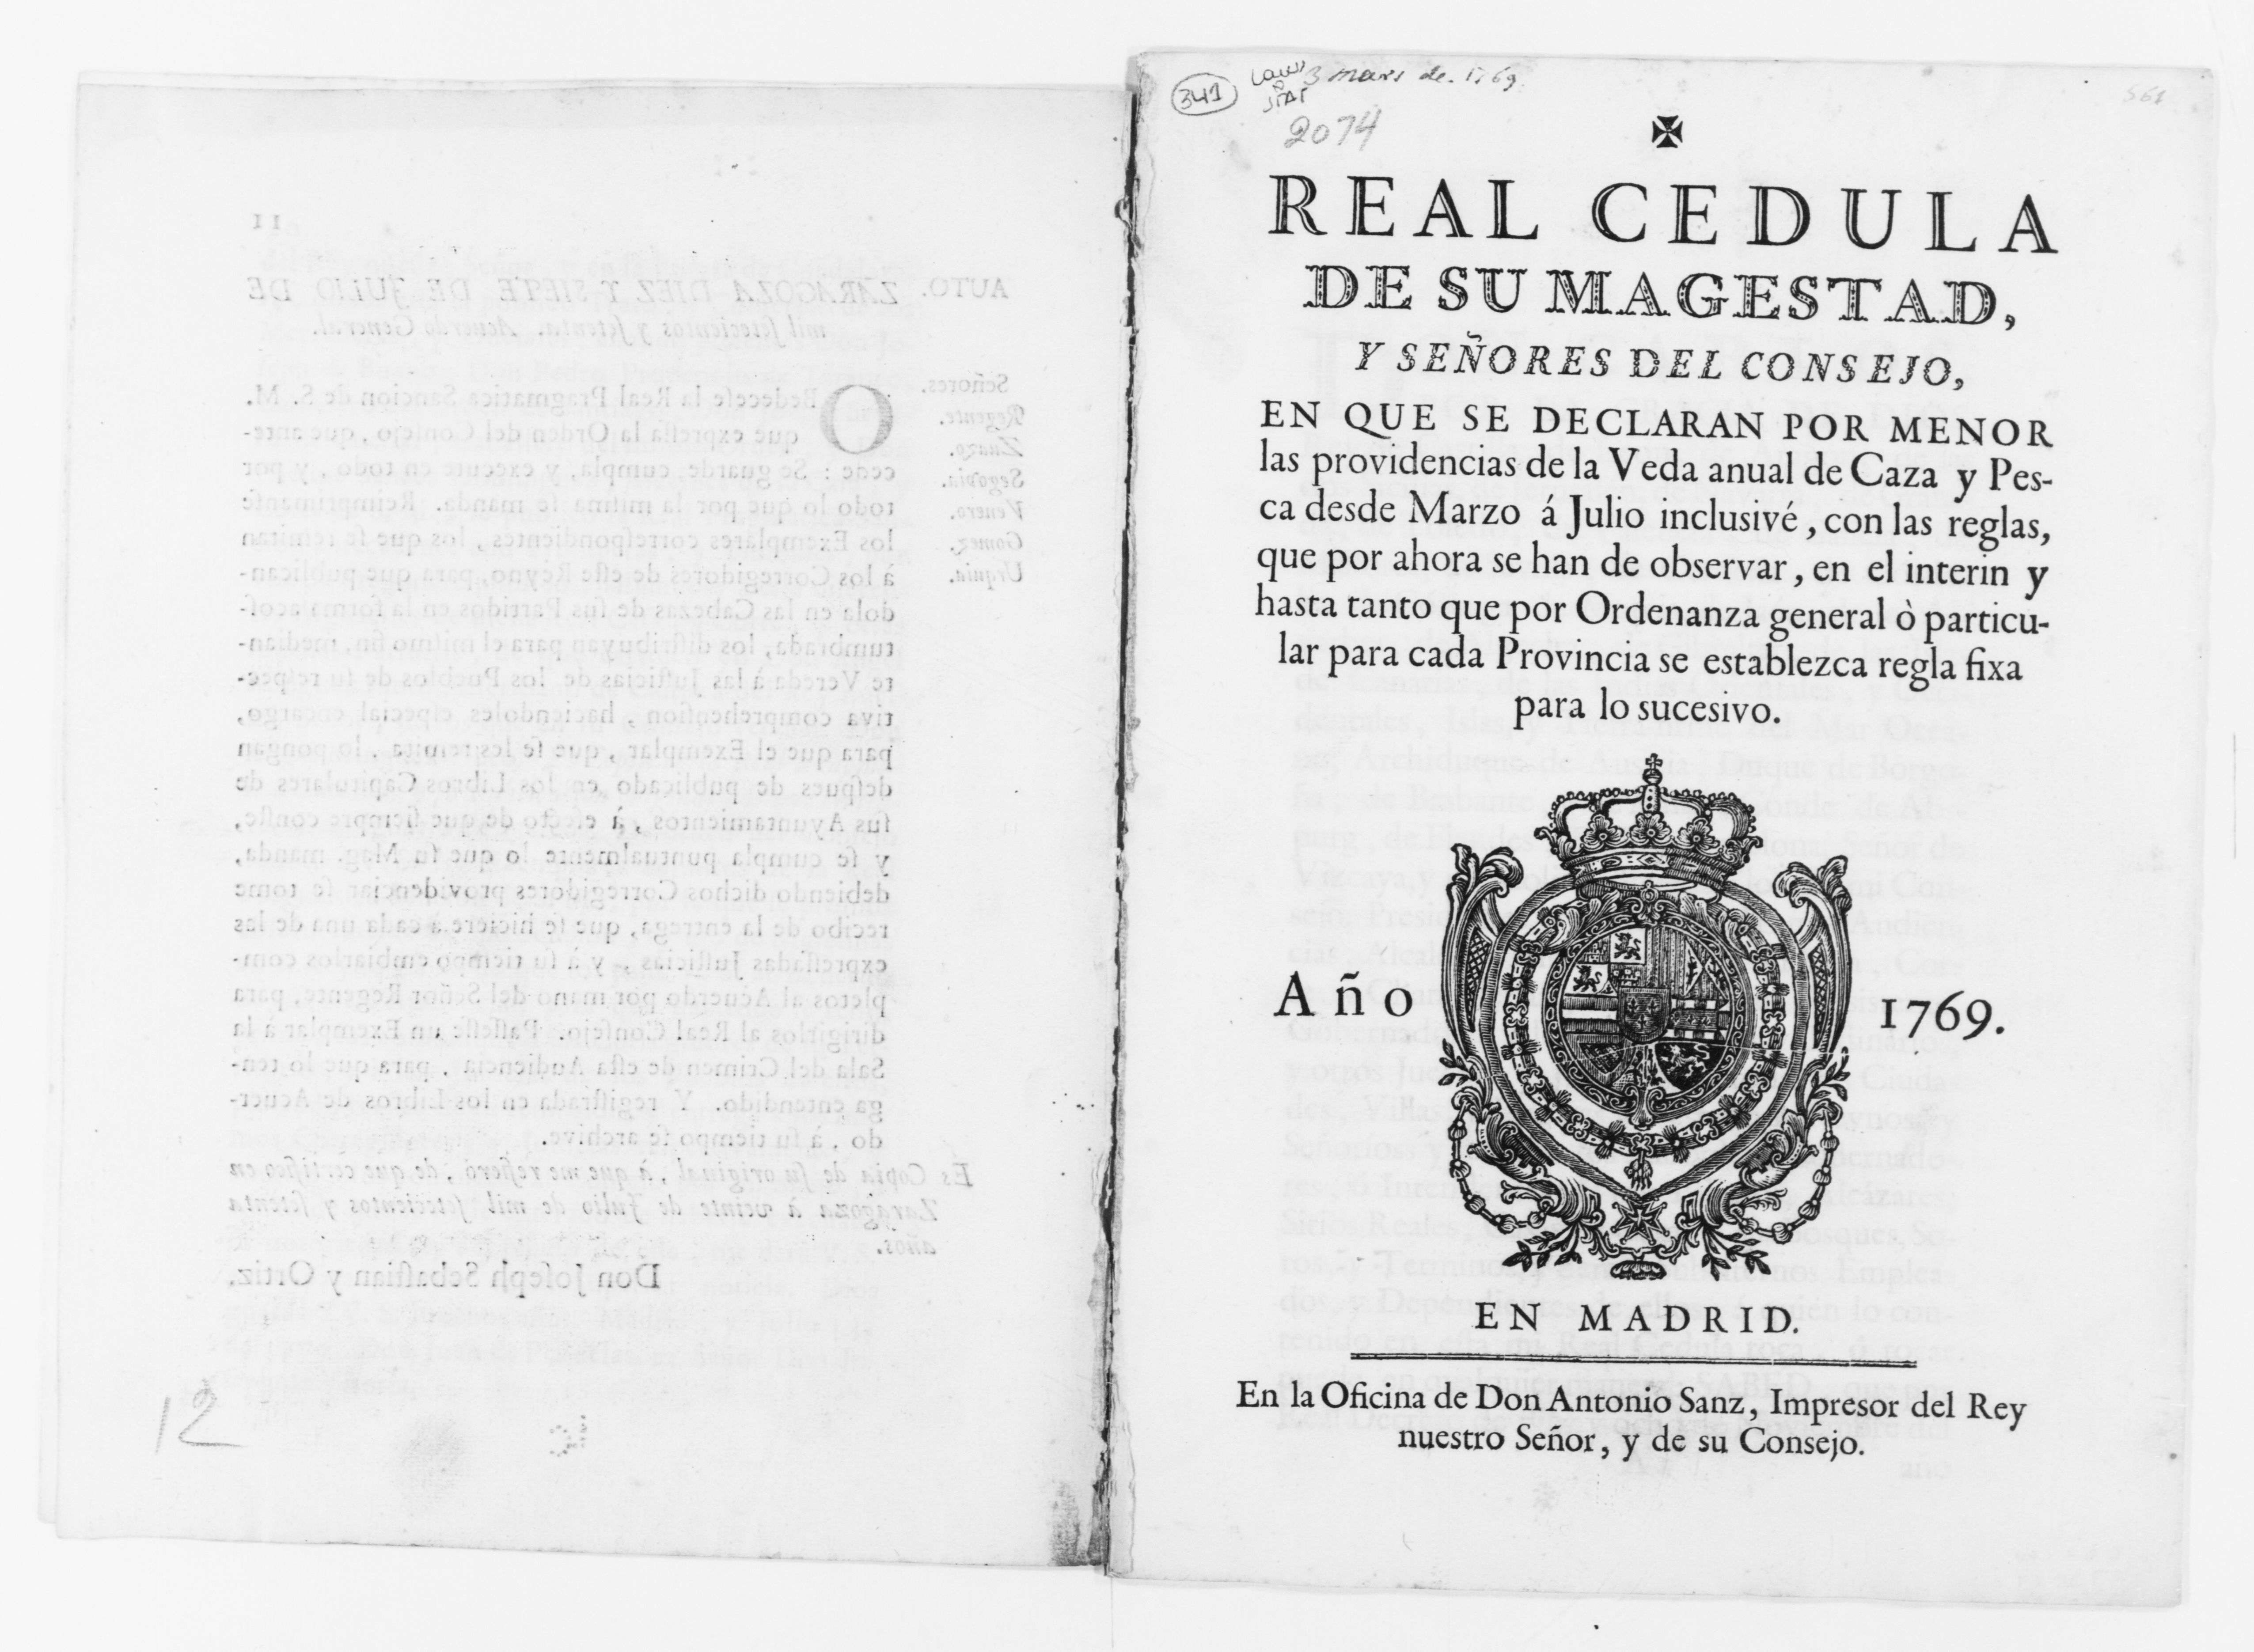 11
AUTO. ZARAGOZA DIEZ Y SIETE DE JULIO DE
mil ſetecientos y ſetenta. Acuerdo General.
Señores.
Regente.
Zuazo.
Segovia.
Venero.
Gomez.
Urquia.
OBedeceſe la Real Pragmatica Sancion de S. M.
que expreſſa la Orden del Conſejo, que ante-
cede : Se guarde, cumpla, y execute en todo, y por
todo lo que por la miſma ſe manda. Reimprimanſe
los Exemplares correſpondientes, los que ſe remitan
à los Corregidores de eſte Reyno, para que publican-
dola en las Cabezas de ſus Partidos en la forma acoſ-
tumbrada, los diſtribuyan para el miſmo fin, median-
te Vereda à las Juſticias de los Pueblos de ſu reſpec-
tiva comprehenſion, haciendoles eſpecial encargo,
para que el Exemplar, que ſe les remita, lo pongan
deſpues de publicado en los Libros Capitulares de
ſus Ayuntamientos, à efecto de que ſiempre conſte,
y ſe cumpla puntualmente lo que ſu Mag. manda,
debiendo dichos Corregidores providenciar ſe tome
recibo de la entrega, que ſe hiciere à cada una de las
expreſſadas Juſticias, y à ſu tiempo embiarlos com-
pletos al Acuerdo por mano del Señor Regente, para
dirigirlos al Real Conſejo. Paſſeſe un Exemplar à la
Sala del Crimen de eſta Audiencia, para que lo ten-
ga entendido. Y regiſtrada en los Libros de Acuer-
do, à ſu tiempo ſe archive.
Es Copia de ſu original, à que me refiero, de que certifico en
Zaragoza à veinte de Julio de mil ſetecientos y ſetenta
años.
Don Joſeph Sebaſtian y Ortiz,
12
341 3 mars de. 1769
2074
561
REAL CEDULA
DE SU MAGESTAD,
Y SEÑORES DEL CONSEJO,
EN QUE SE DECLARAN POR MENOR
las providencias de la Veda anual de Caza y Pes-
ca desde Marzo á Julio inclusivé, con las reglas,
que por ahora se han de observar, en el interin y
hasta tanto que por Ordenanza general ò particu-
lar para cada Provincia se establezca regla fixa
para lo sucesivo.
Año 1769.
EN MADRID.
En la Oficina de Don Antonio Sanz, Impresor del Rey
nuestro Señor, y de su Consejo.